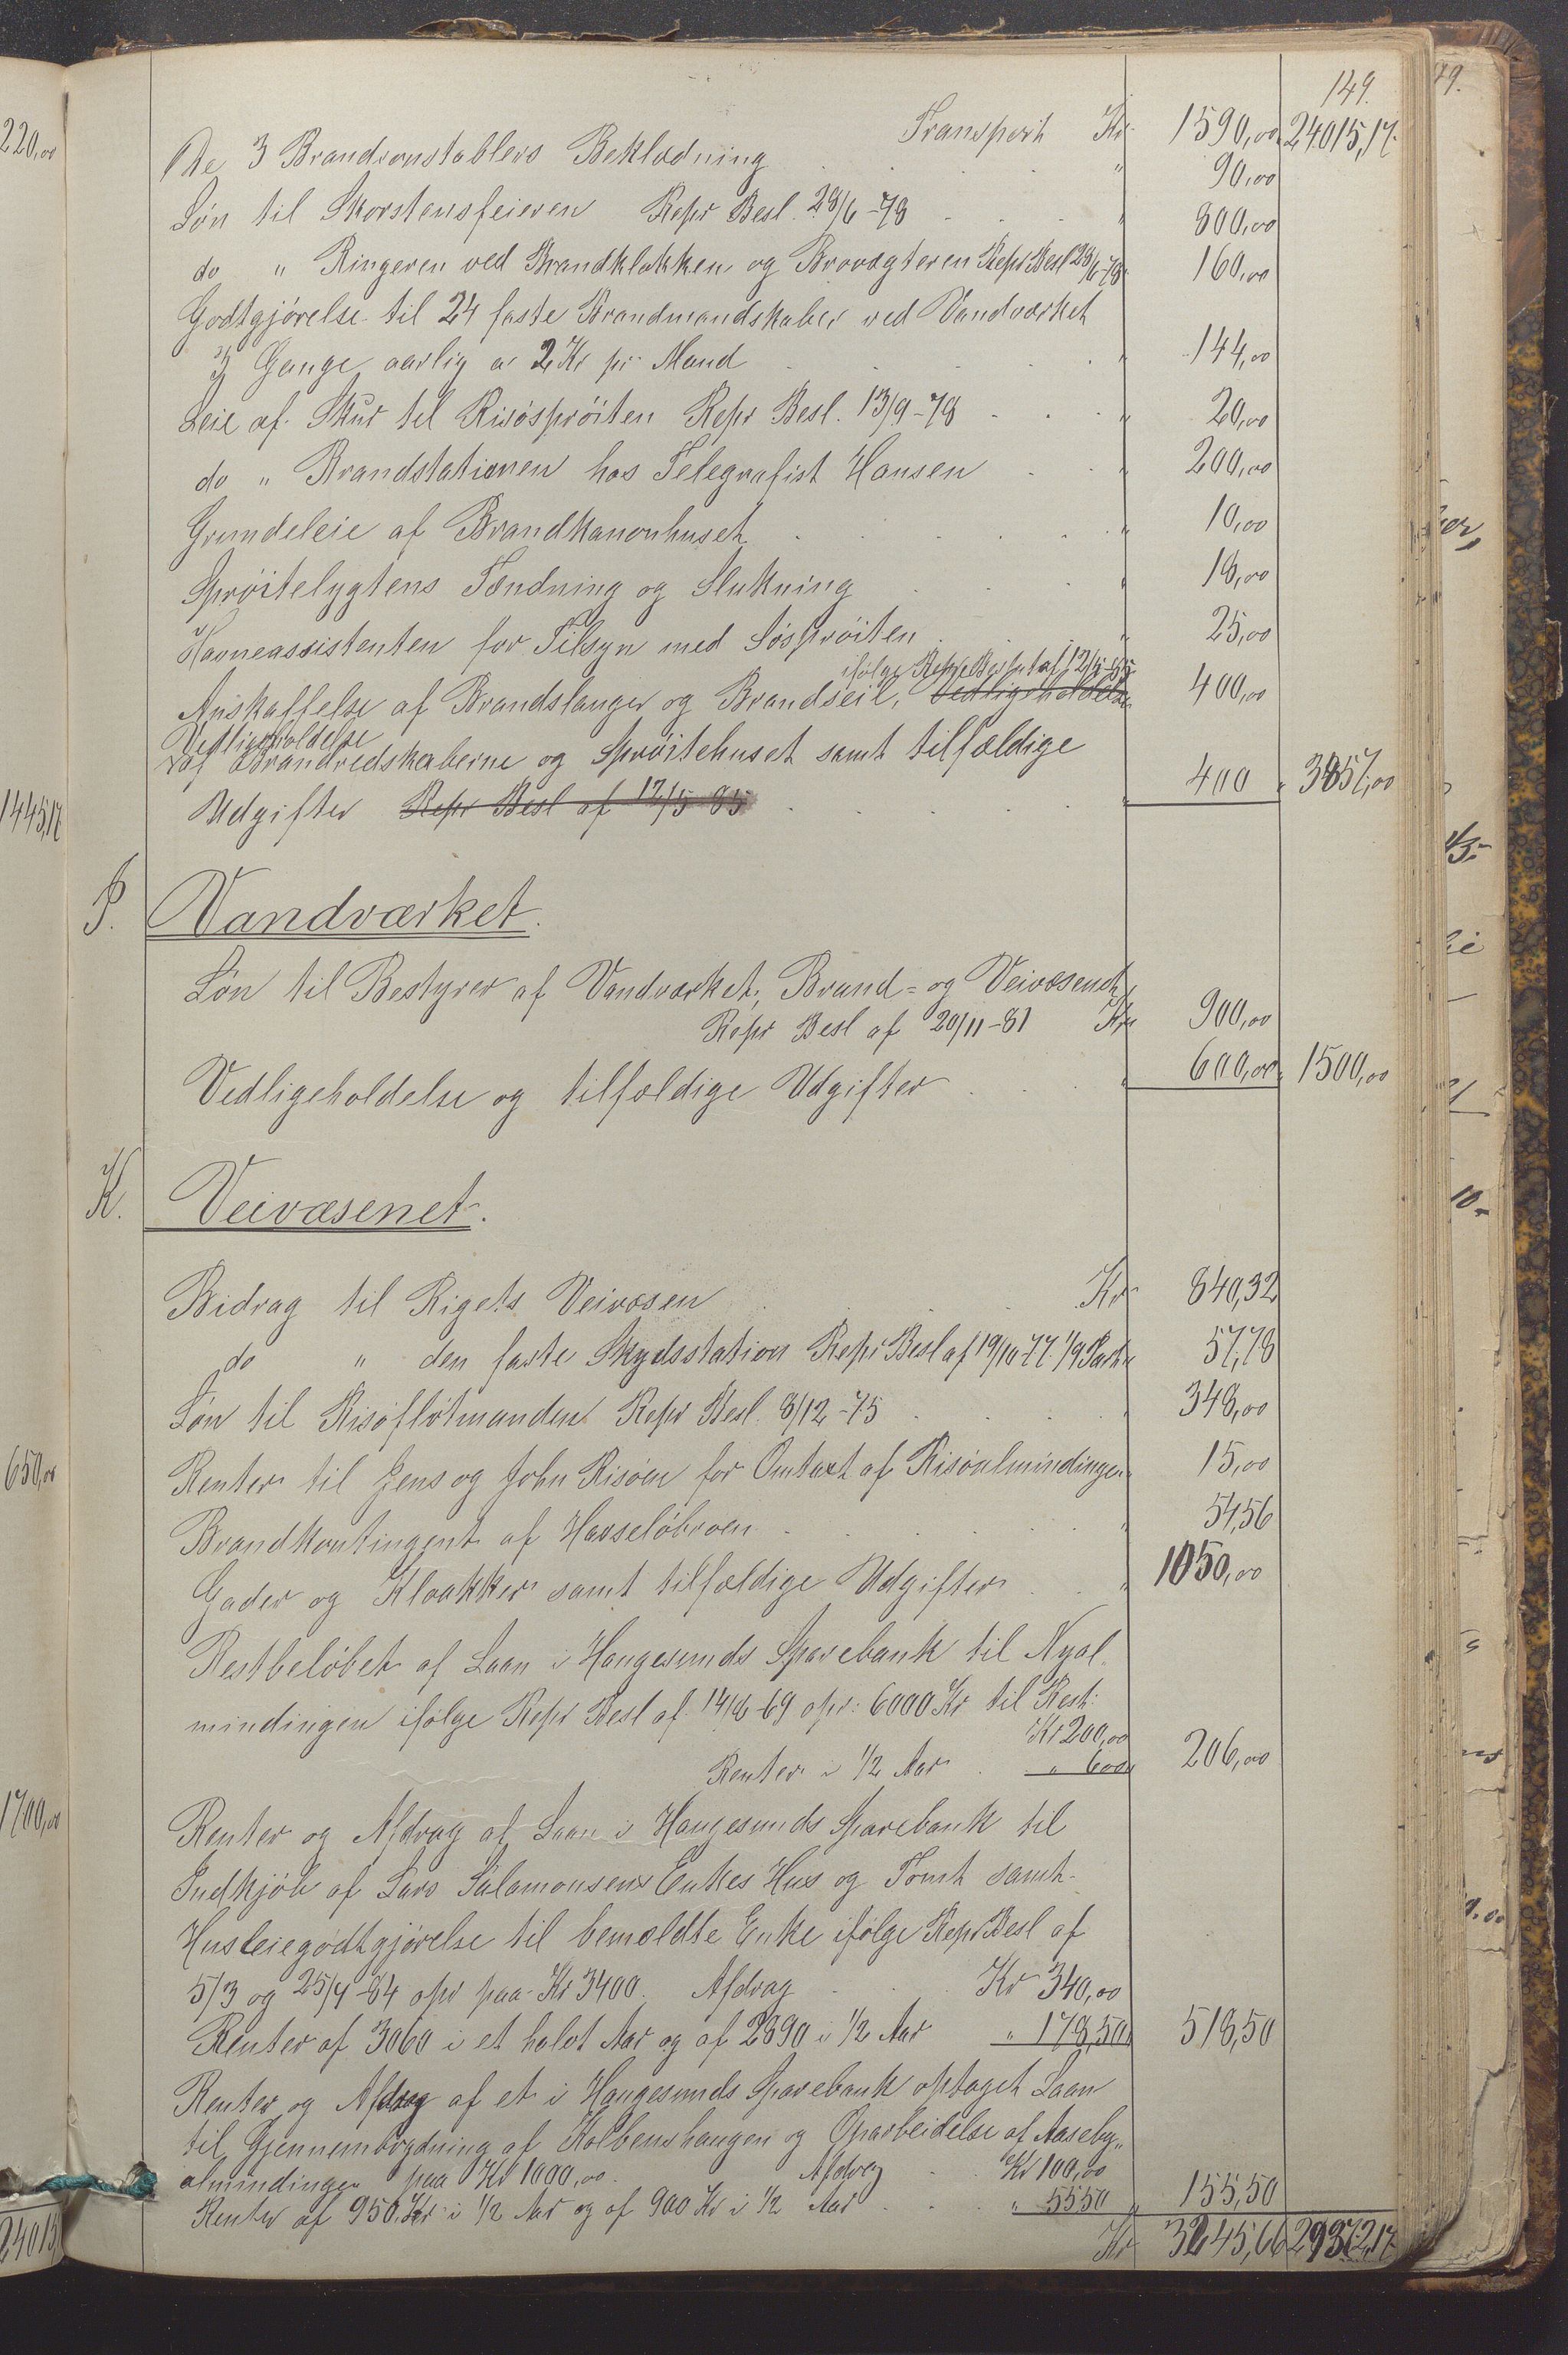 149.
Transport Kr 1590,00 24015,17
De 3 Brandconstablers Beklædning " 90,00
Løn til Skorstensfeieren Repr Besl. 28/6-78 " 800,00
do " Ringeren ved Brandklokken og Brovægteren Repr Besl 28/6-78 160,00
Godtgjørelse til 24 faste Brandmandskaber ved Vandværket
3 Gange aarlig a 2 Kr pr. Mand " 144,00
Leie af Skur til Risøsprøiten Repr Besl. 13/9-78 " 20,00
do " Brandstationen hos Telegrafist Hansen " 200,00
Grundeleie af Brandkanonhuset " 10,00
Sprøitelygtens Tænding og Slukning " 18,00
Havneassistenten for Tilsyn med Søsprøiten " 25,00
ifølge Repr Beslut af 12/5-85
Anskaffelse af Brandslanger og Brandseil, Vedligeholdelse 400,00
Vedligeholdelse
af Brandredskaberne og Sprøitehuset samt tilfældige
Udgifter Repr Besl af 12/5-85 " 400 " 3857,00
P. Vandværket.
Løn til Bestyrer af Vandværket, Brand- og Veivæsenet,
Repr Besl af 20/11-81 Kr 900,00
Vedligeholdelse og tilfældige Udgifter " 600,00 1500,00
K. Veivæsenet.
Bidrag til Rigets Veivæsen Kr 840,32
do " den faste Skydsstation Repr Besl af 19/10-77 1/9 Part " 57,78
Løn til Risøflotmanden Repr Besl. 8/12-75 " 348,00
Renter til Jens og John Risøen for Omtaxt af Risøalmindingen 15,00
Brandkontingent af Hasseløbroen " 54,56
Gader og Kloakker samt tilfældige Udgifter " 1050,00
Restbeløbet af Laan i Haugesunds Sparebank til Nyal
mindingen ifølge Repr Besl af 14/8-69 opr: 6000 Kr til Rest:
Kr 200,00
Renter i 1/2 Aar " 6,00 206,00
Renter og Afdrag af Laan i Haugesunds Sparebank til
Indkjøb af Lars Salamonsens Enkes Hus og Tomt samt
Husleiegodtgjørelse til bemældte Enke ifølge Repr Besl af
5/3 og 25/4-84 opr paa Kr 3400. Afdrag Kr 340,00
Renter af 3060 i et halvt Aar og af 2890 i 1/2 Aar " 178,50 518,50
Renter og Afdrag af et i Haugesunds Sparebank optaget Laan
til Gjennembrydning af Kolbenshaugen og Oparbeidelse af Aaseby„
almindingen paa Kr 1000,00. Afdrag Kr 100,00
Renter af 950 Kr i 1/2 Aar og af 900 Kr i 1/2 Aar " 55,50 " 155,50
Kr 3245,66 29372,17
220,00
1445,17
650,00
1700,00
24015